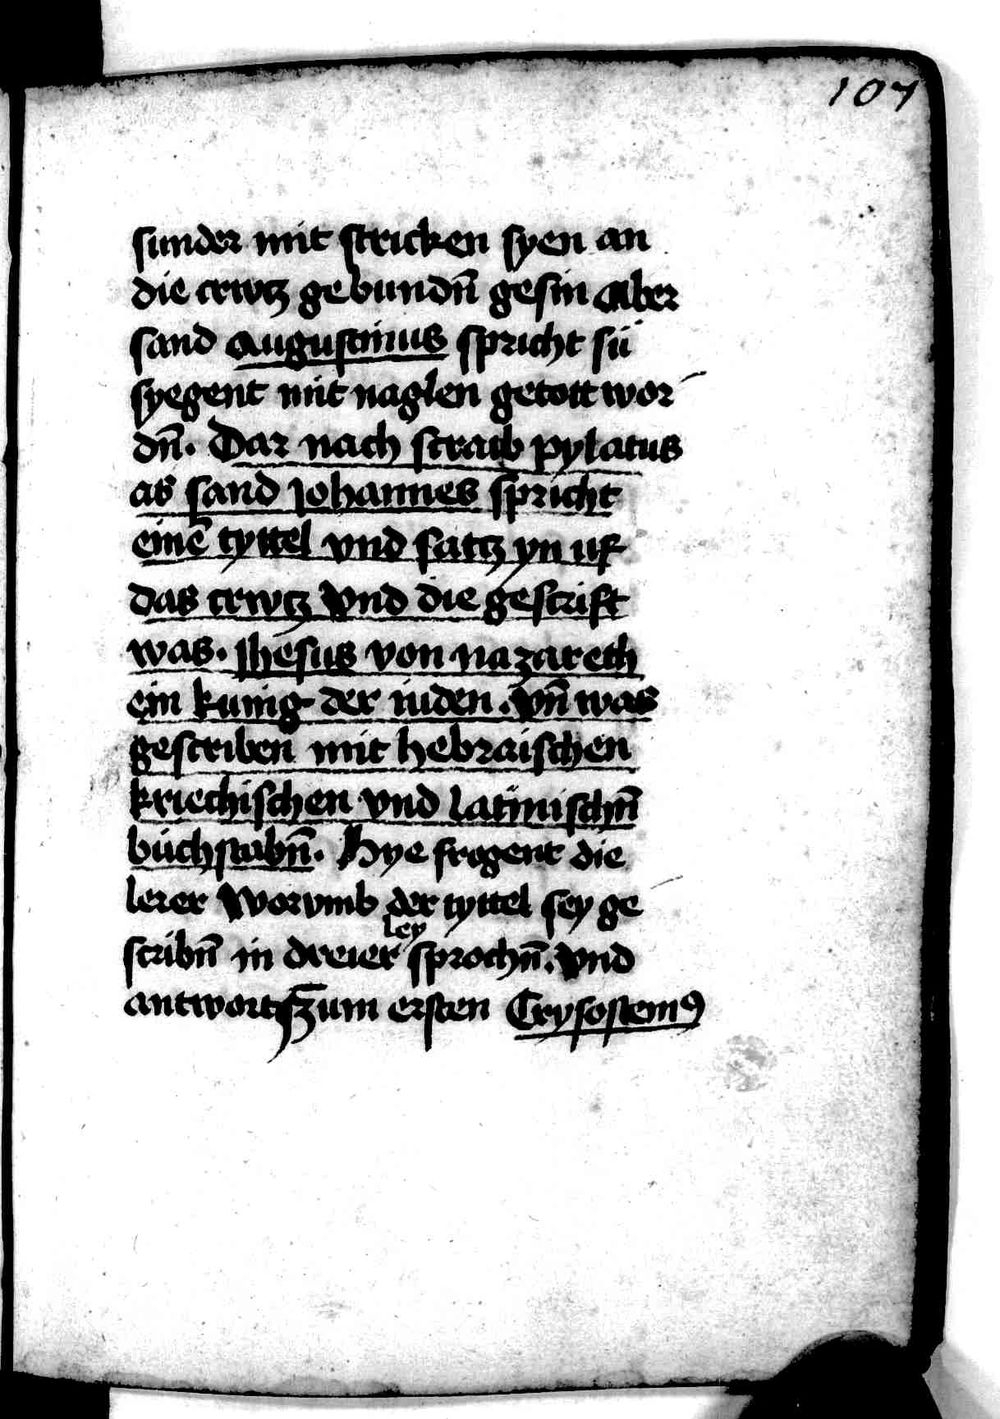 107
sunder mit stricken syen an
die crwtz gebundn̄ gesin Aber
sand Augustinus spricht sü
syegent mit naglen getott wor
dn̄. Dar nach straib pylatus
as sand Johannes spricht
einē tyttel vnd satz yn uf
das crwtz Vnd die gescrift
was. Jhesus von nazareth
ein kunig der iuden. Vn̄ was
gescriben mit hebraischen
kriechischen vnd latinischn̄
büchstabn̄. Hye frogent die
lerer Worvmb der tyttel sey ge
scribn̄ in dreier ley sprochn̄. Vnd
antwort zum ersten Crysostemꝰ